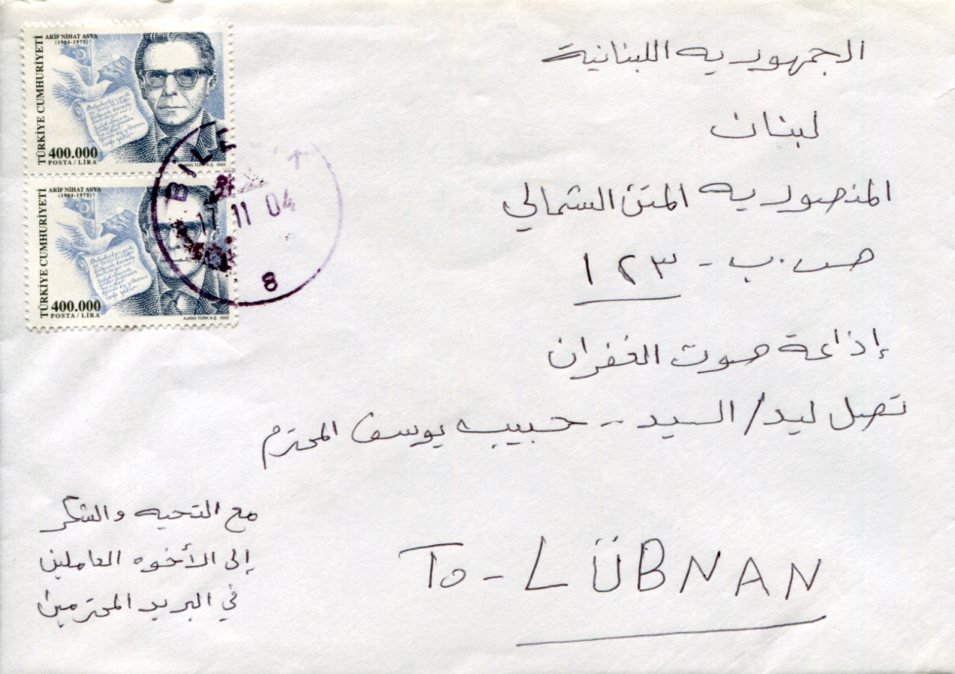 ARİF NİHAT ASYA
(1904-1975)
TÜRKİYE CUMHURİYETİ
400.000
POSTA / LİRA
AJANS TÜRK A.Ş. 2002
ARİF NİHAT ASYA
(1904-1975)
TÜRKİYE CUMHURİYETİ
400.000
POSTA / LİRA
AJANS TÜRK A.Ş. 2002
11 04
8
الجمهوريه اللبنانية
لبنان
المنصوريه المتن الشمالي
ص.ب - ١٢٣
إذاعة صوت الغفران
تصل ليد/ السيد -- حبيب يوسف المحترم
مع التحيه والشكر
إلى الأخوه العاملين
في البريد المحترمين
To - LÜBNAN